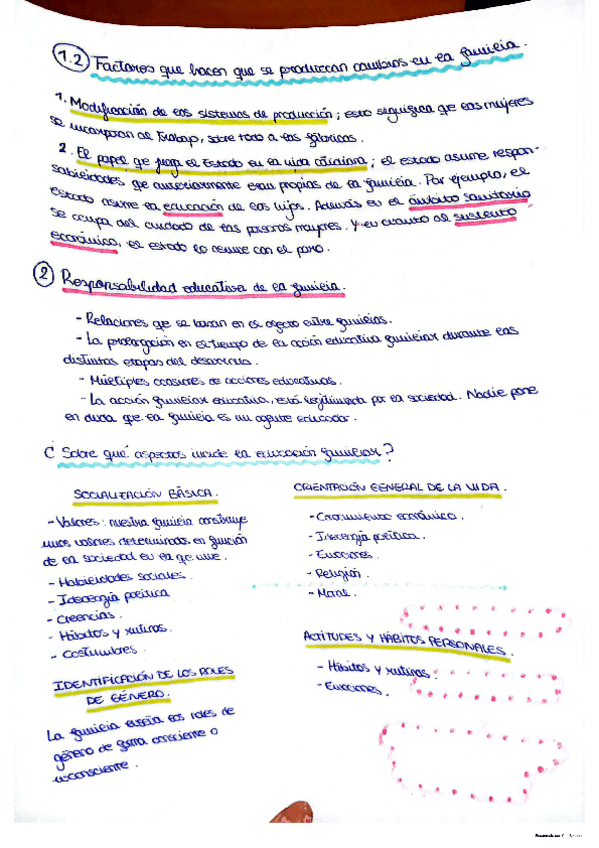 1.2 Factores que hacen que se produzcan cambios en la familia.
1. Modificación de los sistemas de producción; esto significa que las mujeres
se incorporan al trabajo, sobre todo a las fábricas.
2. El papel que juega el Estado en la vida cotidiana; el estado asume respon-
sabilidades que anteriormente eran propias de la familia. Por ejemplo, el
estado asume la educación de los hijos. Además en el ámbito sanitario
se ocupa del cuidado de las personas mayores. Y en cuanto al sustento
económico, el estado lo asume con el paro.
2 Responsabilidad educativa de la familia.
- Relaciones que se basan en el afecto entre familias.
- La prolongación en el tiempo de la acción educativa familiar durante las
distintas etapas del desarrollo.
- Múltiples ocasiones de acciones educativas.
- La acción familiar educativa, está legitimada por la sociedad. Nadie pone
en duda que la familia es un agente educador.
¿Sobre qué aspectos incide la educación familiar?
SOCIALIZACIÓN BÁSICA.
- Valores: nuestra familia construye
unos valores determinados en función
de la sociedad en la que vive.
- Habilidades sociales.
- Ideología política
- Creencias.
- Hábitos y rutinas.
- Costumbres.
IDENTIFICACIÓN DE LOS ROLES
DE GÉNERO.
La familia enseña los roles de
género de forma consciente o
inconsciente.
ORIENTACIÓN GENERAL DE LA VIDA.
- Crecimiento económico.
- Ideología política.
- Emociones.
- Religión.
- Moral.
ACTITUDES Y HÁBITOS PERSONALES.
- Hábitos y rutinas.
- Emociones.